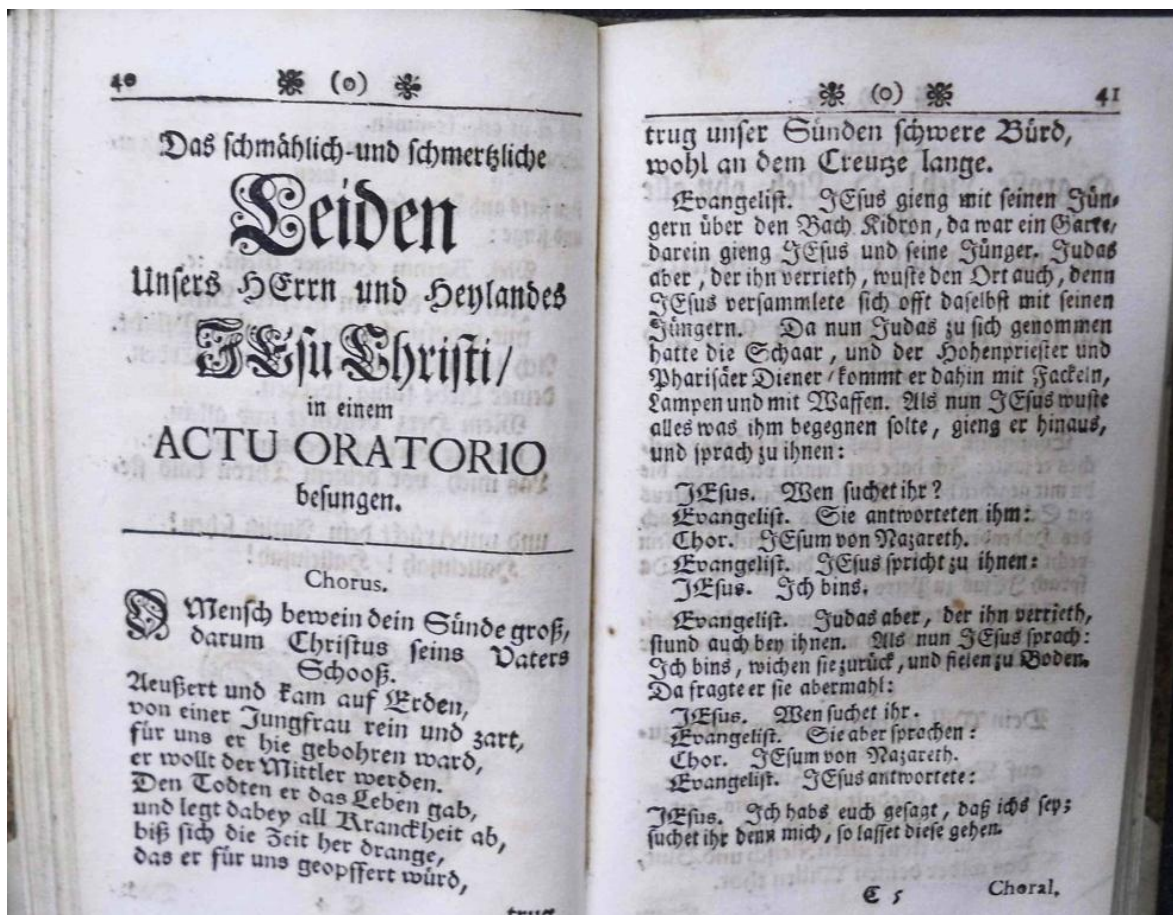 40 (0)
Das schmählich-und schmertzliche
Leiden
Unsers HErrn und Heylandes
JEsu Christi/
in einem
ACTU ORATORIO
besungen.
Chorus.
O Mensch bewein dein Sünde groß,
darum Christus seins Vaters
Schooß.
Aeußert und kam auf Erden,
von einer Jungfrau rein und zart,
für uns er hie gebohren ward,
er wollt der Mittler werden.
Den Todten er das Leben gab,
und legt dabey all Kranckheit ab,
biß sich die Zeit her drange,
das er für uns geopffert würd,
trug
(0) 41
trug unser Sünden schwere Bürd,
wohl an dem Creutze lange.
Evangelist. JEsus gieng mit seinen Jün-
gern über den Bach Kidron, da war ein Garte/
darein gieng JEsus und seine Jünger. Judas
aber, der ihn verrieth, wuste den Ort auch, denn
JEsus versammlete sich offt daselbst mit seinen
Jüngern. Da nun Judas zu sich genommen
hatte die Schaar, und der Hohenpriester und
Pharisäer Diener/kommt er dahin mit Fackeln,
Lampen und mit Waffen. Als nun JEsus wuste
alles was ihm begegnen solte, gieng er hinaus,
und sprach zu ihnen:
JEsus. Wen suchet ihr?
Evangelist. Sie antworteten ihm:
Chor. JEsum von Nazareth.
Evangelist. JEsus spricht zu ihnen:
JEsus. Ich bins.
Evangelist. Judas aber, der ihn verrieth,
stund auch bey ihnen. Als nun JEsus sprach:
Ich bins, wichen sie zurück, und fielen zu Boden.
Da fragte er sie abermahl:
JEsus. Wen suchet ihr.
Evangelist. Sie aber sprachen:
Chor. JEsum von Nazareth.
Evangelist. JEsus antwortete:
JEsus. Ich habs euch gesagt, daß ichs sey;
suchet ihr denn mich, so lasset diese gehen.
C 5 Choral,